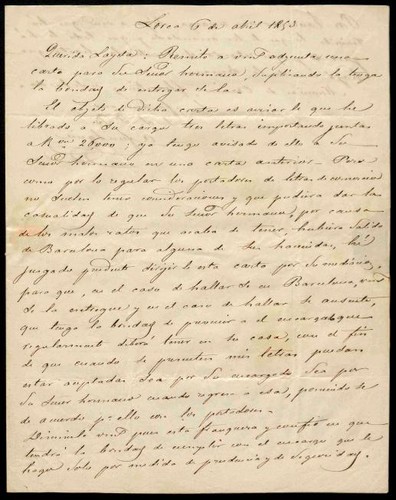 Lorca 6 de abril 1853
Querida Layda: Remito a vmd adjunta una
carta para Su Señor hermano, suplicando la tenga
la bondad de entregarsela.
El objeto de dicha carta es avisarle que he
librado a Su cargo tres letras importando juntas
a Rs von 26,000; ya tengo avisado de ello a Su
Señor hermano en una carta anterior. Pero
como por lo regular los portadores de letras de comercio
no Suelen tener consideraciones y que pudiera dar la
casualidad de que Su Señor hermano, por causa
de los malos ratos que acaba de tener, hubiera Salido
de Barcelona para alguna de Sus haciendas, he
juzgado prudente dirigirle esta carta por Su conducto,
para que, en el caso de hallarse en Barcelona, vmd
Se la entregue; y en el caso de hallarse ausente,
que tenga la bondad de prevenir a el encargado que
regularmente deberá tener en Su casa, con el fin
de que cuando se presenten mis letras puedan
estar aceptadas Sea por Su encargado Sea por
Su Señor hermano cuando regrese a esa, poniendose
de acuerdo pr ello con los portadores.
Disimule vmd pues esta franqueza y confio en que
tendrá la bondad de cumplir con el encargo que le
hago Solo por medida de prudencia y de seguridad.